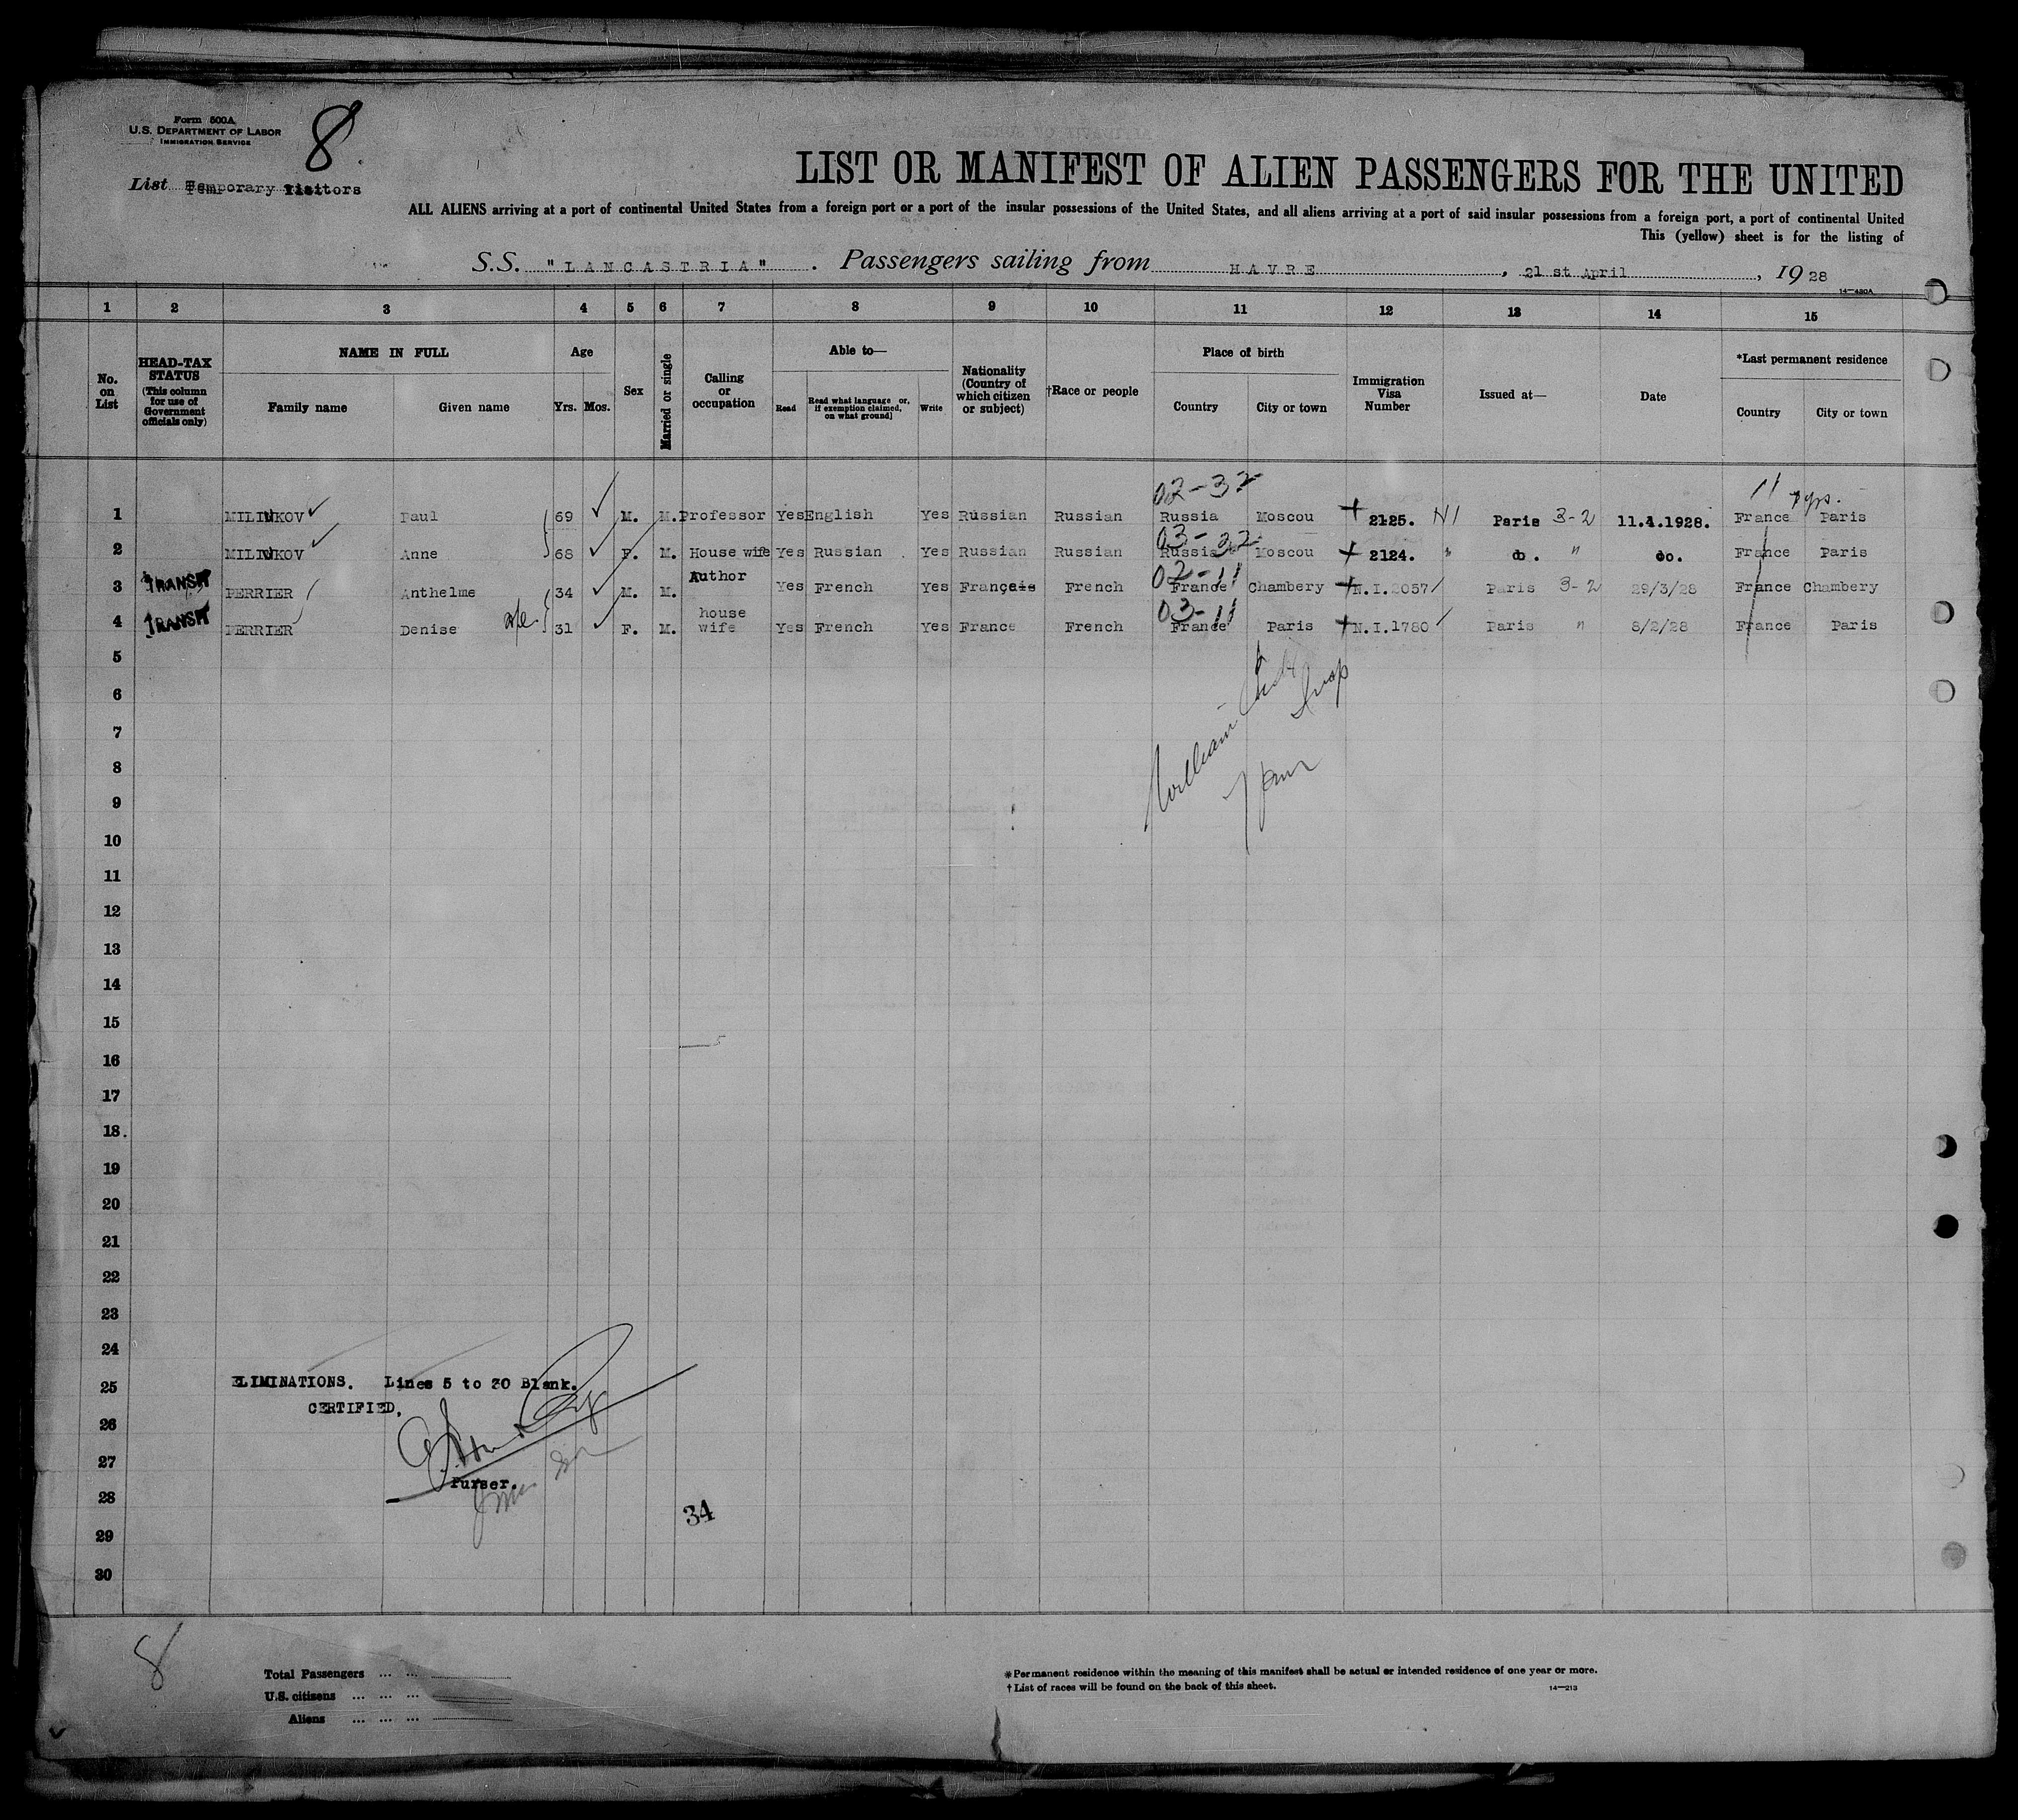 Form 500A
U.S. DEPARTMENT OF LABOR
IMMIGRATION SERVICE
8
List Temporary Visitors
LIST OR MANIFEST OF ALIEN PASSENGERS FOR THE UNITED
ALL ALIENS arriving at a port of continental United States from a foreign port or a port of the insular possessions of the United States, and all aliens arriving at a port of said insular possessions from a foreign port, a port of continental United
This (yellow) sheet is for the listing of
S.S. "LANCASTRIA". Passengers sailing from HAVRE, 21 st April, 19 28
14—430A
1 2 3 4 5 6 7 8 9 10 11 12 13 14 15
No. on List
HEAD-TAX STATUS (This column for use of Government officials only)
NAME IN FULL
Family name Given name
Age
Yrs. Mos.
Sex
Married or single
Calling or occupation
Able to—
Read Read what language or, if exemption claimed, on what ground] Write
Nationality (Country of which citizen or subject)
†Race or people
Place of birth
Country City or town
Immigration Visa Number
Issued at—
Date
*Last permanent residence
Country City or town
02-32 11 yrs.
1 MILIUKOV Paul 69 M. M. Professor Yes English Yes Russian Russian Russia Moscou 2125. Paris 3-2 11.4.1928. France Paris
03-32
2 MILIUKOV Anne 68 F. M. House wife Yes Russian Yes Russian Russian Russia Moscou 2124. " do. " do. France Paris
02-11
3 TRANSIT PERRIER Anthelme 34 M. M. Author Yes French Yes Français French France Chambery N.I.2057 Paris 3-2 29/3/28 France Chambery
03-11
4 TRANSIT PERRIER Denise 31 F. M. house wife Yes French Yes France French France Paris N.I.1780 Paris " 8/2/28 France Paris
5
6
William Insp
7
8
9
10
11
12
13
14
15
16
17
18.
19
20
21
22
23
24
25 ELIMINATIONS. Lines 5 to 30 Blank.
CERTIFIED,
26
27
Purser.
28
34
29
30
8
Total Passengers ... ...
U.S. citizens ... ... ...
Aliens ... ... ...
*Permanent residence within the meaning of this manifest shall be actual or intended residence of one year or more.
†List of races will be found on the back of this sheet.
14—213